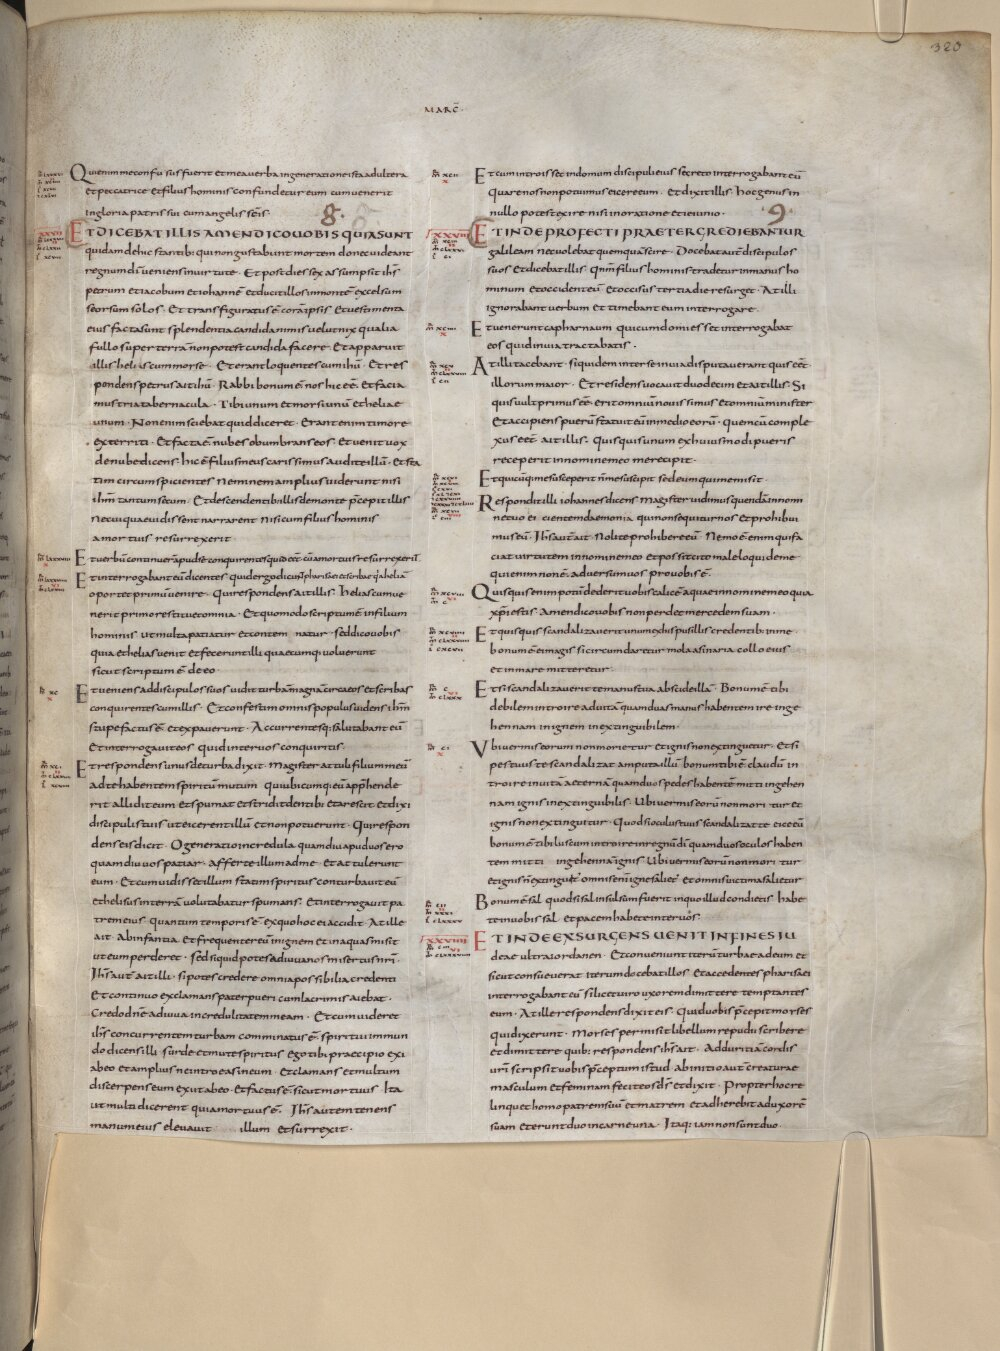 320
MARC̄·
Qui enim me confusus fuerit et mea verba in generatione ista adultera
et peccatrice et filius hominis confundetur eum cum venerit
in gloria patris sui cum angelis sc̄is
8.
ET DICEBAT ILLIS AMEN DICO VOBIS QUIA SUNT
quidam de hic stantib; qui non gustabunt mortem donec videant
regnum dī veniens in virtute · Et post dies sex assumpsit ihs̄
petrum et iacobum et iohannē et ducit illos in montē excelsum
seorsum solos · Et transfiguratus ē coram ipsis Et vestimenta
eius facta sunt splendentia candida nimis velut nix qualia
fullo super terrā non potest candida facere · Et apparuit
illis helias cum morse · Et erant loquentes cum ihū · Et res
pondens petrus ait ihū · Rabbi bonum ē nos hic eē · Et facia
mus tria tabernacula · Tibi unum et morsi unū et heliae
unum · Non enim sciebat quid diceret · Erant enim timore
exterriti · Et facta ē nubes obumbrans eos · Et venit vox
de nube dicens · hic ē filius meus carissimus audite illū · Et sta
tim circumspicientes neminem amplius viderunt nisi
ihm̄ tantum secum · Et descendentib; illis de monte p̄cepit illis
ne cui quae vidissent narrarent nisi cum filius hominis
a mortuis resurrexerit
Et verbū continuer̄ apud sē conquirentes quid eēt cū a mortuis resurrexerit
Et interrogabant eū dicentes quid ergo dicunt pharisaei et scribae q̄a heliā
oportet primū venire · Qui respondens ait illis · Helias cum ve
nerit primo restituet omnia · Et quomodo scriptum ē in filium
hominis ut multa patiatur et contem natur · sed dico vobis
quia et helias venit et fecerunt illi quaecumq; voluerunt
sicut scriptum ē de eo
Et veniens ad discipulos suos vidit turbā magnā circa eos et scribas
conquirentes cum illis · Et confestim omnis populus videns ihm̄
stupefactus ē et expaverunt · Accurrentesq; salutabant eū
Et interrogavit eos quid inter vos conquiritis·
Et respondens unus de turba dixit · Magister attuli filium meū
ad te habentem spiritū mutum · qui ubicumq; eū app̄hende
rit allidit eum et spumat et stridit dentib; et arescit Et dixi
discipulis tuis ut eicerent illū et non potuerunt · Qui respon
dens eis dicit · O generatio incredula quamdiu apud vos ero
quamdiu vos patiar · afferte illum ad me · Et attulerunt
eum · Et cum vidisset illum statim spiritus conturbavit eū
et helisus in terrā volutabatur spumans · Et interrogavit pa
trem eius · quantum temporis ē ex quo hoc ei accidit · At ille
ait · Ab infantia · Et frequenter eū in ignem et in aquas misit
ut eum perderet · sed si quid potes adiuva nos misertus nr̄i ·
Ihs̄ aut̄ ait illi · si potes credere omnia possibilia credenti
Et continuo exclamans pater pueri cum lacrimis aiebat ·
Credo dn̄e adiuva incredulitatem meam · Et cum videret
ihs̄ concurrentem turbam comminatus ē · spiritui inmun
do dicens illi surde et mute spiritus ego tibi praecipio exi
ab eo et amplius ne introeas in eum · Et clamans et multum
discerpens eum exiit ab eo · Et factus ē sicut mortuus · Ita
ut multi dicerent quia mortuus ē · Ihs̄ autem tenens
manum eius elevavit illum et surrexit ·
Et cum introisset in domum discipuli eius secreto interrogabant eū
quare nos non potuimus eicere eum · Et dixit illis · hoc genus in
nullo potest exire nisi in oratione et ieiunio ·
9.
ET INDE PROFECTI PRAETERGREDIEBANTUR
galileam nec volebat quemquā scire · Docebat aut̄ discipulos
suos et dicebat illis · Qnm̄ filius hominis tradetur in manus ho
minum et occident eū et occisus tertia die resurget · At illi
ignorabant verbum et timebant eum interrogare ·
Et venerunt capharnaum qui cum domi esset interrogabat
eos quid in via tractabatis ·
At illi tacebant · siquidem inter se in via disputaverant quis eēt
illorum maior · Et residens vocavit duodecim et ait illis · Si
quis vult primus eē · erit omniū novissimus et omniū minister
Et accipiens puerū statuit eū in medio eorū · quem cū comple
xus eēt ait illis · Quisquis unum ex huiusmodi pueris
receperit in nomine meo me recipit ·
Et quicūq; me susceperit n̄ me suscipit sed eum qui me misit ·
Respondit illi iohannes dicens Magister vidimus quendā in nomi
ne tuo eicientem daemonia qui non sequitur nos et prohibui
mus eū · Ihs̄ aut̄ ait · Nolite prohibere eū · Nemo ē enim qui fa
ciat virtutem in nomine meo et possit cito male loqui de me
qui enim non ē adversum vos pro vobis ē ·
Quisquis enim potū dederit vobis calicē aquae in nomine meo quia
xp̄i estis Amen dico vobis non perdet mercedem suam ·
Et quisquis scandalizaverit unum ex his pusillis credentib; in me ·
bonum ē ei magis si circumdaretur mola asinaria collo eius
et in mare mitteretur ·
Et si scandalizaverit te manus tua abscide illā · Bonum ē tibi
debilem introire ad vitā quam duas manus habentem ire in ge
hennam in ignem inextinguibilem ·
Ubi vermis eorum non morietur et ignis non extinguetur · Et si
pes tuus te scandalizat amputa illū · bonum tibi ē claudū in
troire in vitā aeternā quam duos pedes habentē mitti in gehen
nam ignis inextinguibilis · Ubi vermis eorū non moritur et
ignis non extinguitur · Quod si oculus tuus scandalizat te eice eū
bonum ē tibi luscum introire in regnū dī quam duos oculos haben
tem mitti in gehennā ignis Ubi vermis eorū non moritur
et ignis n̄ extinguit̄ · omnis enim igne saliet̄ et omnis victima salietur
Bonum ē sal quod si sal insulsum fuerit in quo illud condietis · habe
te in vobis sal et pacem habete inter vos ·
ET INDE EXSURGENS VENIT IN FINES IU
deae ultra iordanen · Et conveniunt iterū turbae ad eum et
sicut consueverat iterum docebat illos Et accedentes pharisaei
interrogabant eū si licet viro uxorem dimittere temptantes
eum · At ille respondens dixit eis · Quid vobis p̄cepit morses
qui dixerunt · Morses permisit libellum repudii scribere
et dimittere quib; respondens ihs̄ ait · Ad duritiā cordis
vr̄i scripsit vobis p̄ceptum istud ab initio aut̄ creaturae
masculum et feminam fecit eos d̄s et dixit · Propter hoc re
linquet homo patrem suū et matrem et adherebit ad uxorē
suam et erunt duo in carne una · Itaq; iam non sunt duo